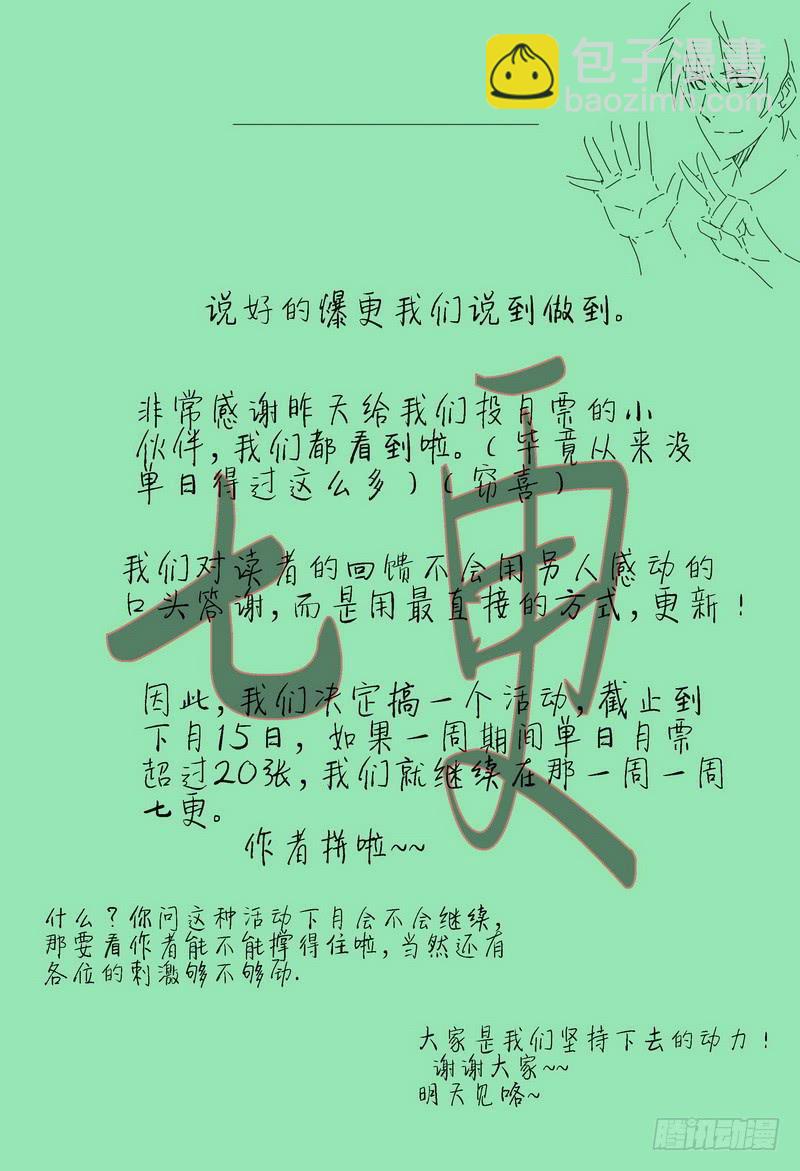 包子漫畫
baozimh.com
说好的爆更我们说到做到。
七更
非常感谢昨天给我们投月票的小
伙伴,我们都看到啦。(毕竟从来没
单日得过这么多)(窃喜)
我们对读者的回馈不会用另人感动的
口头答谢,而是用最直接的方式,更新!
因此,我们决定搞一个活动,截止到
下月15日,如果一周期间单日月票
超过20张,我们就继续在那一周一周
七更。
作者拼啦~~
什么?你问这种活动下月会不会继续,
那要看作者能不能撑得住啦,当然还有
各位的刺激够不够劲.
大家是我们坚持下去的动力!
谢谢大家~~
明天见咯~
腾讯动漫